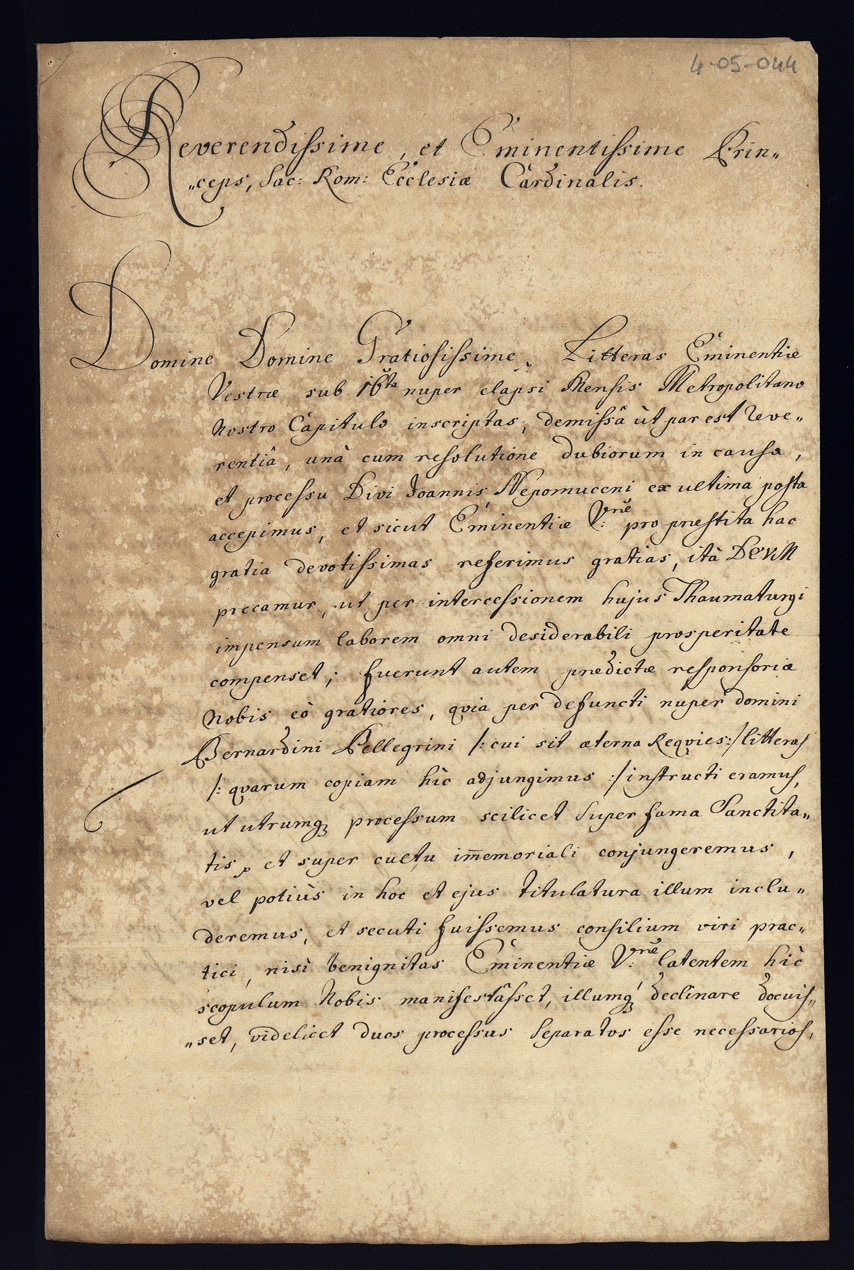 4-05-044
Reverendissime, et Eminentissime Prin„
„ceps, Sac: Rom: Ecclesiæ Cardinalis.
Domine Domine Gratiosissime, Litteras Eminentiæ
Vestræ sub 16ta nuper elapsi Mensis Metropolitano
Nostro Capitulo inscriptas, demissâ ùt par est Reve„
rentiâ, unà cum resolutione dubiorum in causa,
et processu Divi Joannis Nepomuceni ex ultima posta
accepimus, et sicut Eminentiæ V:ræ pro præstita hac
gratia devotissimas referimus gratias, ità DEVM
precamur, ut per intercessionem hujus Thaumaturgi
impensum laborem omni desiderabili prosperitate
compenset; fuerunt autem prædictæ responsoriæ
Nobis eò gratiores, quia per defuncti nuper domini
Bernardini Pellegrini /: cui sit æterna Reqvies :/ litteras
/: quarum copiam hìc adjungimus :/ instructi eramus,
ut utrumq3 processum scilicet super fama Sanctita„
tis, et super cultu im̅emoriali conjungeremus,
vel potiùs in hoc et ejus titulatura illum inclu„
deremus, et secuti fuissemus consilium viri prac„
tici, nisi benignitas Eminentiæ V:ræ latentem hìc
scopulum Nobis manifestâsset, illumq3 declinare docuis„
„set, videlicet duos processus separatos esse necessarios,